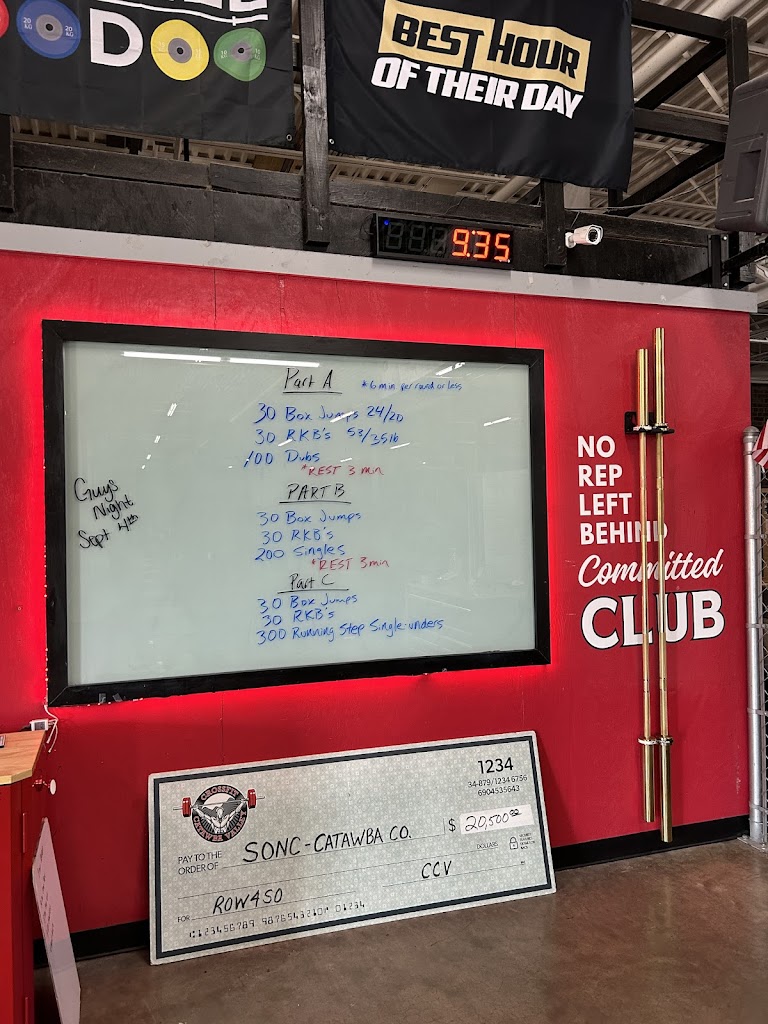 DO
BEST HOUR
OF THEIR DAY
9:35
Part A
*6 min per round or less
30 Box Jumps 24/20
30 RKB's 53/35lb
100 Dubs
*REST 3 min
PART B
30 Box Jumps
30 RKB's
200 Singles
*REST 3min
Part C
30 Box Jumps
30 RKB's
300 Running Step Single-unders
Guys
Night
Sept 4th
NO
REP
LEFT
BEHIND
Committed
CLUB
1234
34-879/1234 6756
6904535643
CROSSFIT
CATAWBA VALLEY
PAY TO THE
ORDER OF
SONC-CATAWBA CO.
$ 20,500
DOLLARS
FOR
ROW4SO
CCV